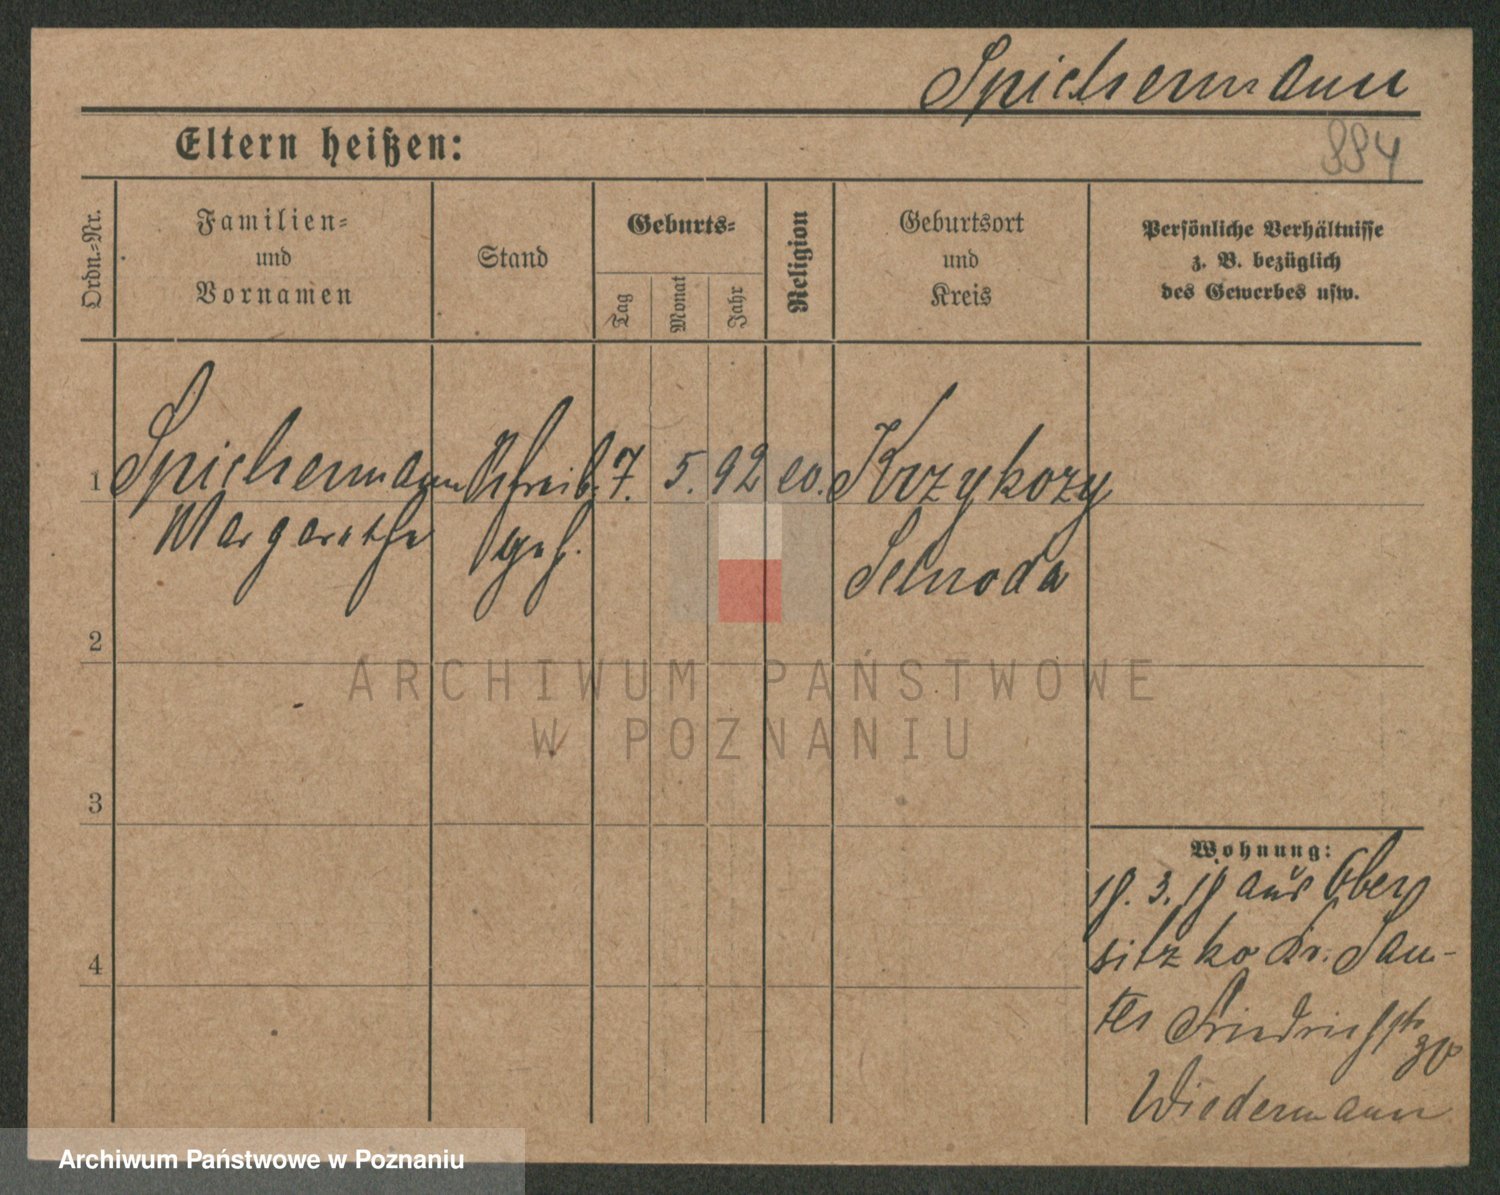 Spichermann
Eltern heißen:
884
Ordn.-Nr.
Familien-
und
Vornamen
Stand
Geburts-
Tag
Monat
Jahr
Religion
Geburtsort
und
Kreis
Persönliche Verhältnisse
z. B. bezüglich
des Gewerbes usw.
1 Spichermann Schreib. 7. 5. 92 ev. Krzykozy
Margarethe geh. Schroda
2
3
4
ARCHIWUM PAŃSTWOWE
W POZNANIU
Wohnung:
19. 3. 19 aus Ober
sitzko Kr. Sam-
ter Friedrichstr
Wiedermann
Archiwum Państwowe w Poznaniu